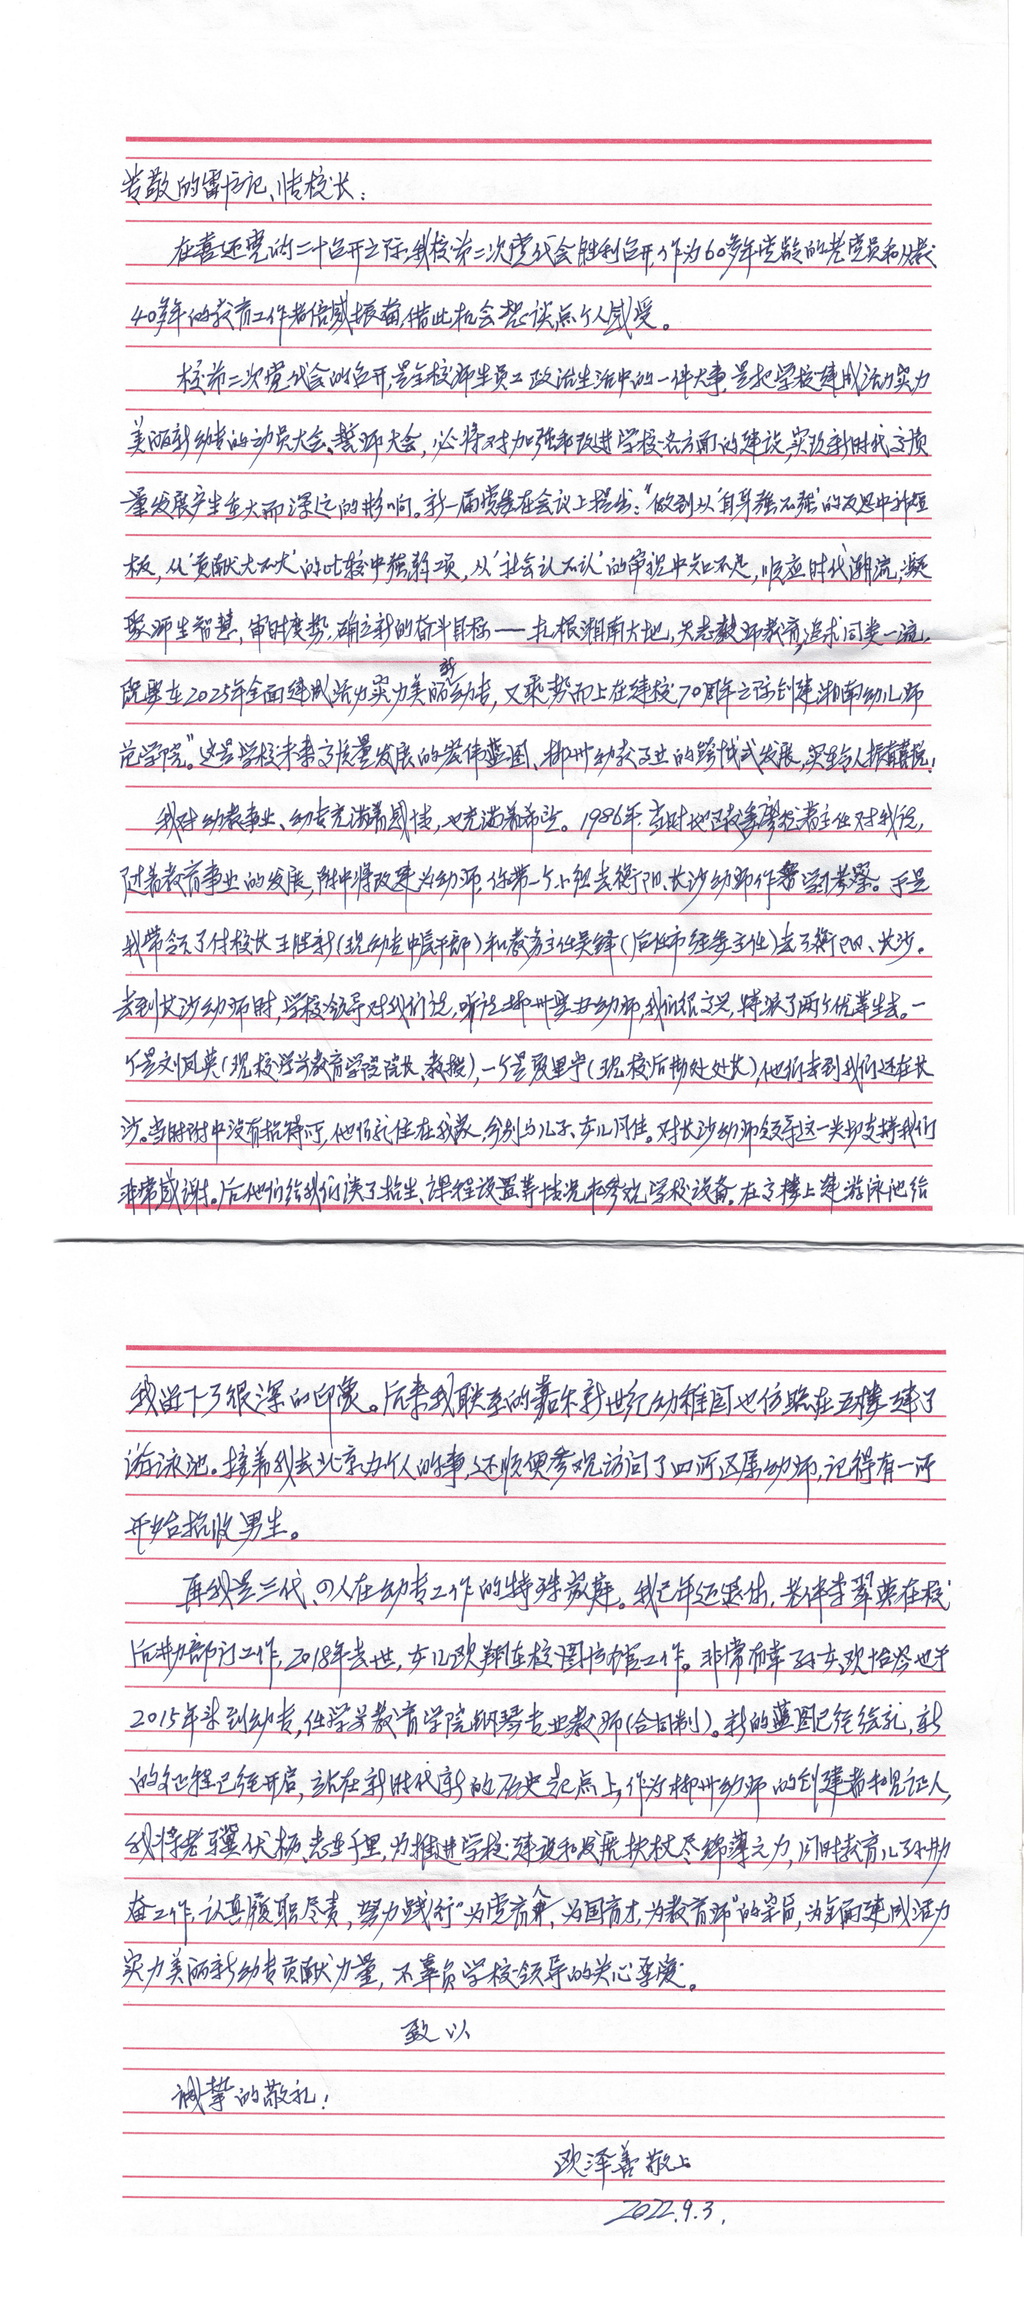 尊敬的雷书记、陆校长:
在喜迎党的二十召开之际,我校第二次党代会胜利召开,作为60多年党龄的老党员和从教
40多年的教育工作者倍感振奋,借此机会想谈点个人感受。
校第二次党代会的召开,是全校师生员工政治生活中的一件大事,是把学校建成活力实力
美丽新幼专的动员大会、誓师大会,必将对加强和改进学校各方面的建设,实现新时代高质
量发展产生重大而深远的影响。新一届党委在会议上提出:“做到从‘自身强不强’的反思中补短
板,从‘贡献大不大’的比较中强弱项,从‘社会认不认’的审视中知不足,顺应时代潮流,凝
聚师生智慧,审时度势,确立新的奋斗目标——扎根湘南大地,矢志教师教育,追求同类一流,
既要在2025年全面建成活力实力美丽新幼专,又乘势而上在建校70周年之际创建湘南幼儿师
范学院。”这是学校未来高质量发展的宏伟蓝图、郴州幼教事业的跨越式发展,实在令人振奋喜悦!
我对幼教事业、幼专充满着感情,也充满着希望。1986年,当时地区教委主任对我说,
随着教育事业的发展,附中将改建为幼师,你带一个小组去衡阳、长沙幼师作学习考察。于是
我带领了付校长王胜新(现幼专中层干部)和教务主任吴锋(后任市经委主任)去了衡阳、长沙。
去到长沙幼师时,学校领导对我们说,听说郴州要办幼师,我们很高兴,特派了两个优等生去。一
个是刘凤英(现校学前教育学院院长、教授),一个是夏里宁(现校后勤处处长),他们来到我们还在长
沙。当时附中没有招待所,他们就住在我家,分别与儿子、女儿同住。对长沙幼师领导这一关切支持我们
非常感谢。后他们给我们谈了招生、课程设置等情况和参观学校设备。在高楼上建游泳池给
我留下了很深的印象。后来我联系的嘉禾新世纪幼稚园也仿照在五楼建了
游泳池。接着我去北京办个人的事,还顺便参观访问了四所区属幼师,记得有一所
开始招收男生。
再我是三代、四人在幼专工作的特殊家庭。我已年迈退休,老伴李翠英在校
后勤部门工作,2018年去世,女儿欧翔在校图书馆工作。非常有幸孙女欧怡岑也于
2015年来到幼专,任学前教育学院钢琴专业教师(合同制)。新的蓝图已经绘就,新
的征程已经开启,站在新时代新的历史起点上,作为郴州幼师的创建者和见证人,
我将老骥伏枥、志在千里,为推进学校建设和发展扶杖尽绵薄之力,同时教育儿孙勤
奋工作,认真履职尽责,努力践行“为党育人,为国育才,为教育师”的宗旨,为全面建成活力
实力美丽新幼专贡献力量,不辜负学校领导的关心厚爱。
致以
诚挚的敬礼!
欧泽善敬上
2022.9.3.